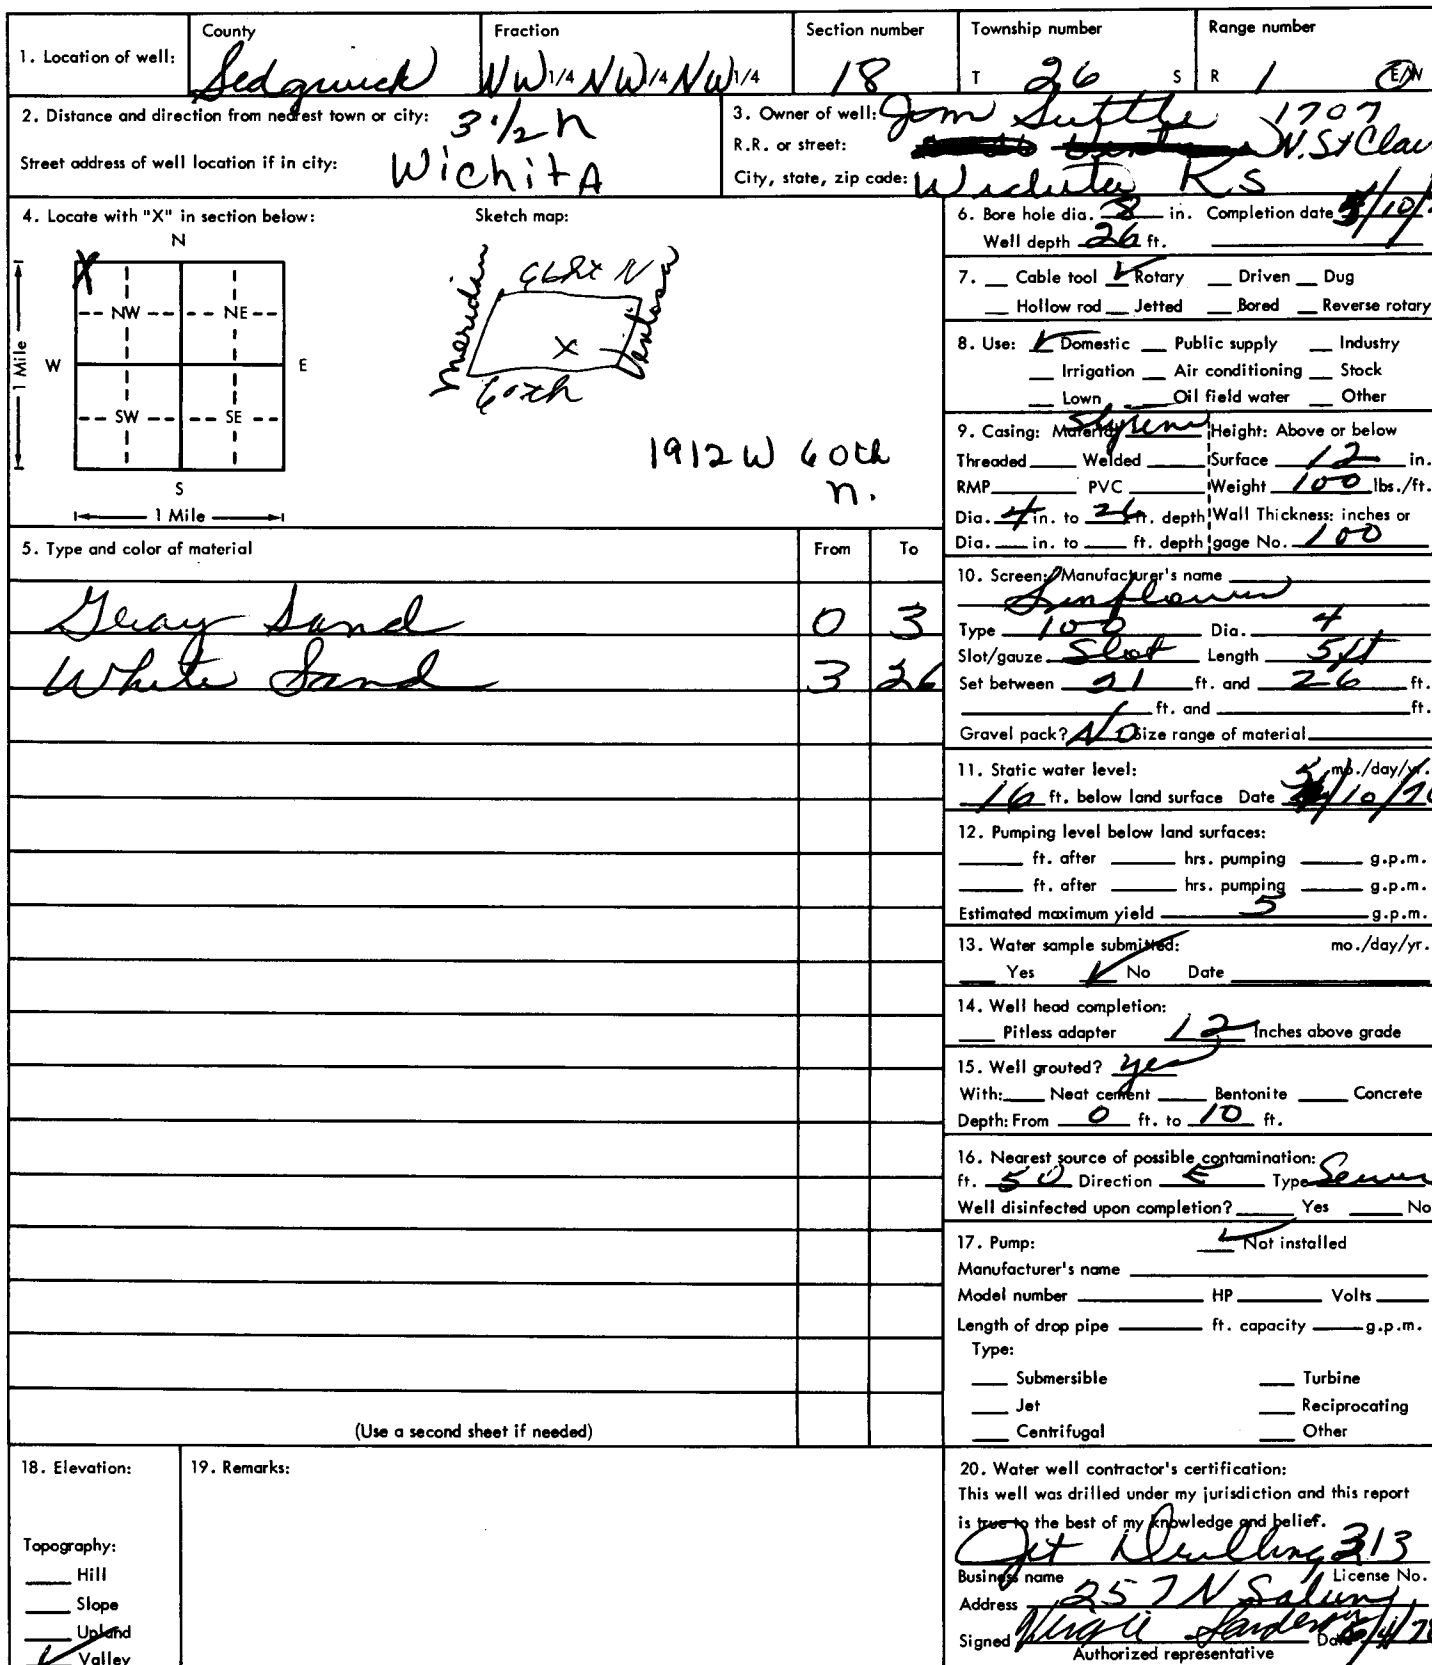 County Fraction Section number Township number Range number
1. Location of well: Sedgwick NW 1/4 NW 1/4 NW 1/4 18 T 26 S R 1 E/W
2. Distance and direction from nearest town or city: 3 1/2 N
Street address of well location if in city: Wichita
3. Owner of well: Jim Suttle 1707
R.R. or street: N. St Clair
City, state, zip code: Wichita KS
4. Locate with "X" in section below: Sketch map:
N
X
NW NE
W E
SW SE
S
1 Mile
1 Mile
Meridian
N
X
60th
1912 W 60th
N.
5. Type and color of material From To
Gray Sand 0 3
White Sand 3 26
(Use a second sheet if needed)
6. Bore hole dia. 8 in. Completion date 5/10/
Well depth 26 ft.
7. Cable tool ✓ Rotary Driven Dug
Hollow rod Jetted Bored Reverse rotary
8. Use: ✓ Domestic Public supply Industry
Irrigation Air conditioning Stock
Lown Oil field water Other
9. Casing: Material Styrene Height: Above or below
Threaded Welded Surface 12 in.
RMP PVC Weight 100 lbs./ft.
Dia. 4 in. to 26 ft. depth Wall Thickness: inches or
Dia. in. to ft. depth gage No. 100
10. Screen: Manufacturer's name
Sunflower
Type 100 Dia. 4
Slot/gauze Slot Length 5ft
Set between 21 ft. and 26 ft.
ft. and ft.
Gravel pack? NO Size range of material
11. Static water level: mo./day/yr.
16 ft. below land surface Date 5/10/7
12. Pumping level below land surfaces:
ft. after hrs. pumping g.p.m.
ft. after hrs. pumping g.p.m.
Estimated maximum yield 5 g.p.m.
13. Water sample submitted: mo./day/yr.
Yes ✓ No Date
14. Well head completion:
Pitless adapter 12 Inches above grade
15. Well grouted? yes
With: Neat cement Bentonite Concrete
Depth: From 0 ft. to 10 ft.
16. Nearest source of possible contamination:
ft. 50 Direction E Type Sewer
Well disinfected upon completion? Yes No
17. Pump: ✓ Not installed
Manufacturer's name
Model number HP Volts
Length of drop pipe ft. capacity g.p.m.
Type:
Submersible Turbine
Jet Reciprocating
Centrifugal Other
18. Elevation:
Topography:
Hill
Slope
Upland
✓ Valley
19. Remarks:
20. Water well contractor's certification:
This well was drilled under my jurisdiction and this report
is true to the best of my knowledge and belief.
Jet Drilling 313
Business name License No.
Address 257 N Salina
Signed Date
Authorized representative